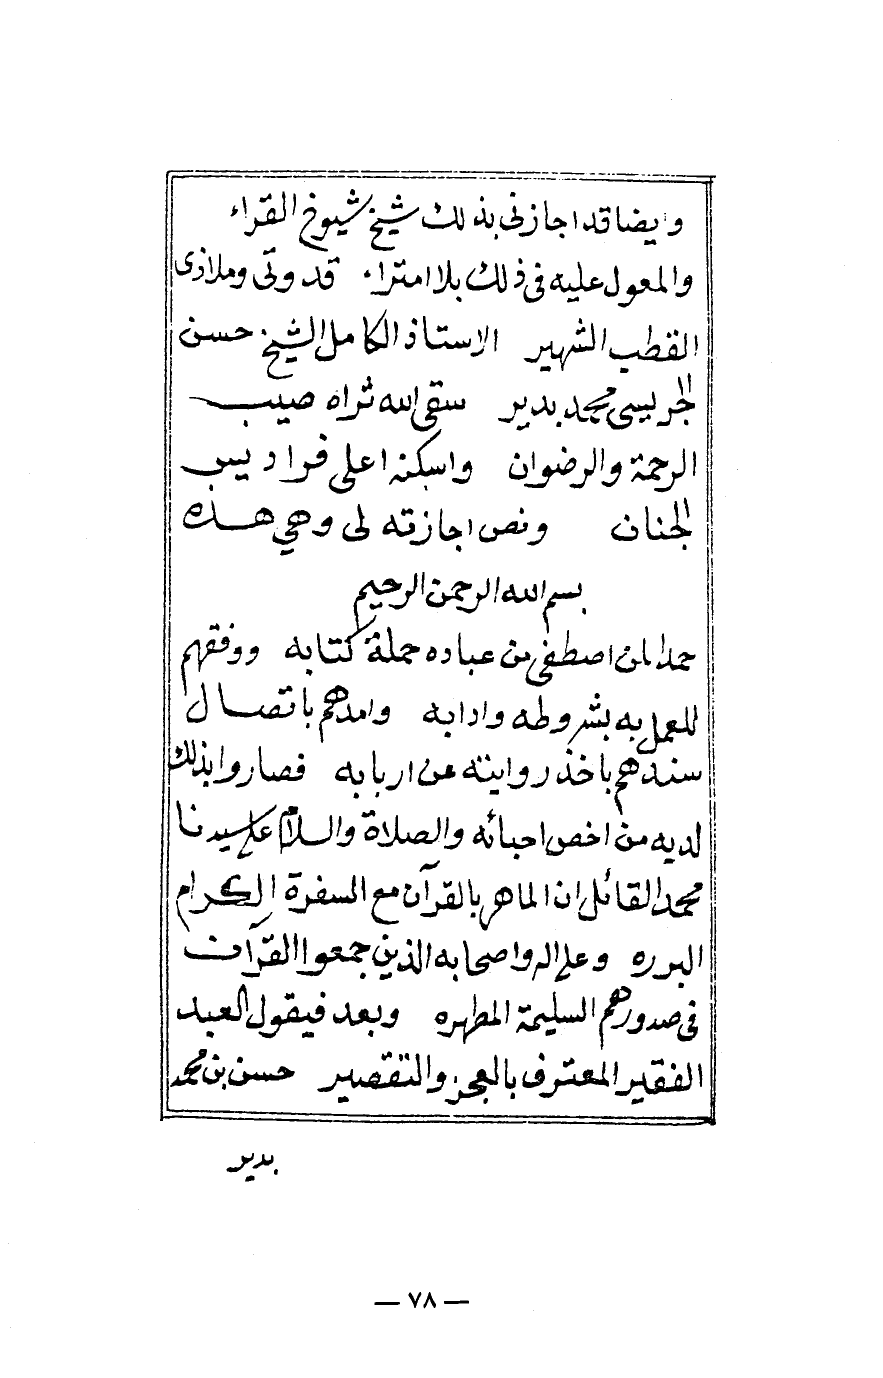 وايضا قد اجازنى بذلك شيخ شيوخ القراء
والمعول عليه فى ذلك بلا امتراء قدوتى وملاذى
القطب الشهير الاستاذ الكامل الشيخ حسن
الجريسى محمد بدير سقى الله ثراه صيب
الرحمة والرضوان واسكنه اعلى فراديس
الجنان ونص اجازته لى وهي هذه
بسم الله الرحمن الرحيم
حمدا لمن اصطفى من عباده حملة كتابه ووفقهم
للعمل به بشروطه وادابه وامدهم باتصال
سندهم باخذ روايته عن اربابه فصاروا بذلك
لديه من اخص احبائه والصلاة والسلام على سيدنا
محمد القائل ان الماهر بالقرآن مع السفرة الكرام
البرره وعلى اله واصحابه الذين جمعوا القرآن
فى صدورهم السليمة المطهره وبعد فيقول العبد
الفقير المعترف بالعجز والتقصير حسن بن محمد
بدير
— ٧٨ —